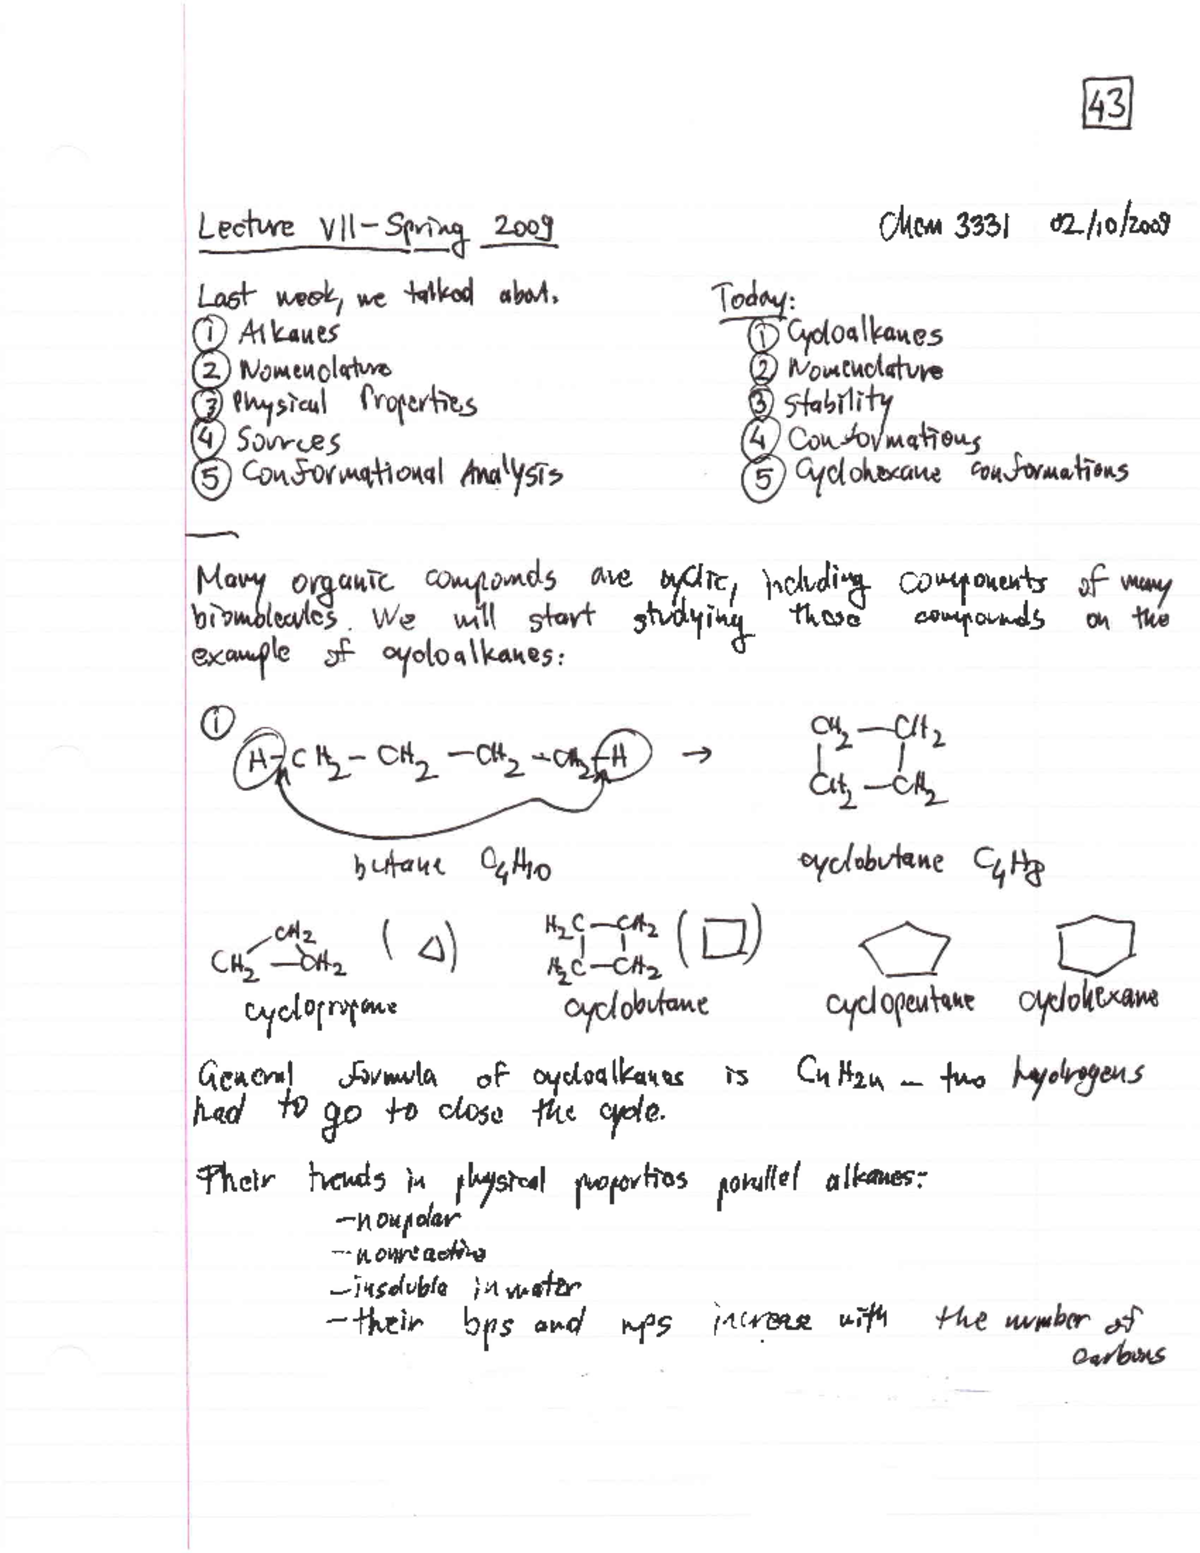 43
Lecture VII - Spring 2009
Chem 3331 02/10/2009
Last week, we talked about.
① Alkanes
② Nomenclature
③ Physical Properties
④ Sources
⑤ Conformational Analysis
Today:
① Cycloalkanes
② Nomenclature
③ Stability
④ Conformations
⑤ Cyclohexane conformations
Many organic compounds are cyclic, including components of many
biomolecules. We will start studying these compounds on the
example of cycloalkanes:
①
H-CH2-CH2-CH2-CH2-H →
CH2-CH2
CH2-CH2
butane C4H10
cyclobutane C4H8
CH2
CH2-CH2
H2C-CH2
H2C-CH2
cyclopropane
cyclobutane
cyclopentane
cyclohexane
General formula of cycloalkanes is CnH2n - two hydrogens
had to go to close the cycle.
Their trends in physical properties parallel alkanes:
-nonpolar
-nonreactive
-insoluble in water
-their bps and mps increase with the number of
carbons